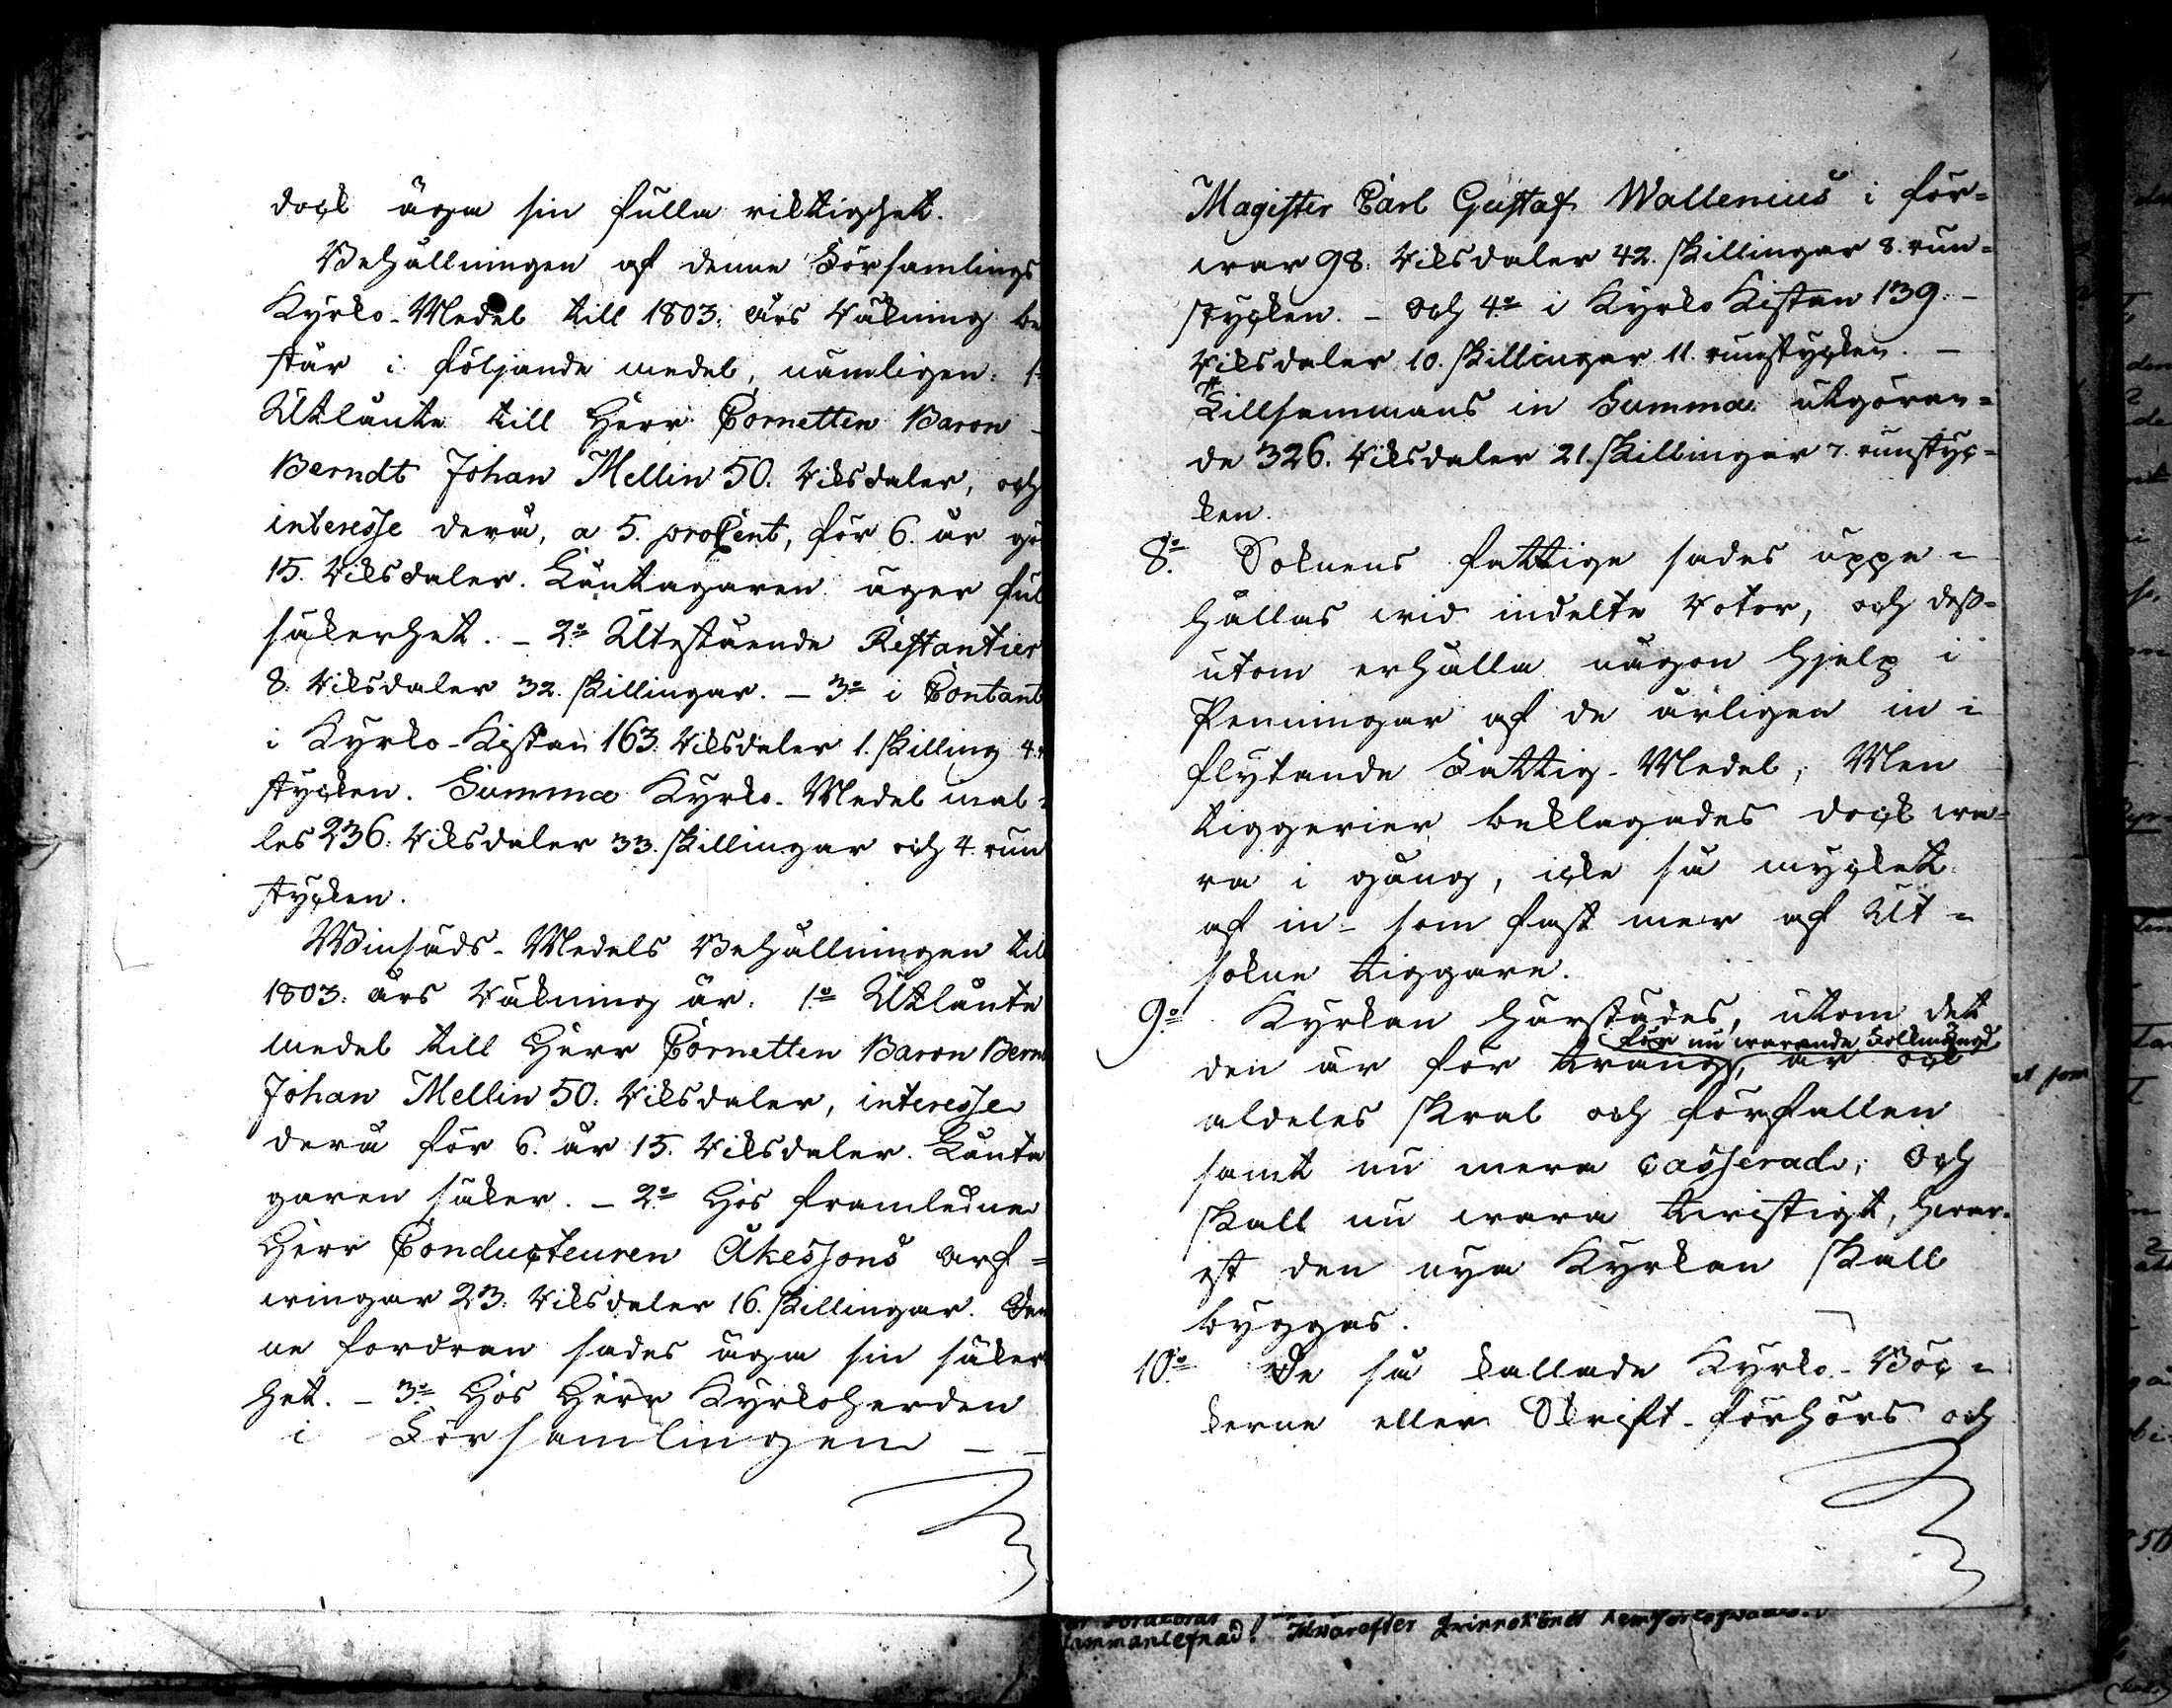 dock äga sin fulla riktighet.
Behållningen af denne Församlings
Kyrko-Medel till 1803: års Räkning be
står i följande medel, nämligen: 1o
Utlånte till Herr Cornetten Baron
Berndt Johan Mellin 50. Riksdaler, och
interesse derå, a 5. proCent, för 6. år gö
15. Riksdaler. Låntagaren äger full
säkerhet. – 2o Utestående Restantier
8: Riksdaler 32. skillingar. – 3o i Contant
i Kyrko-Kistan 163: Riksdaler 1. skilling 4.
stycken. Summa Kyrko-Medel mal=
les 236: Riksdaler 33. skillingar och 4. run
stycken.
Winsäds-Medels Behållningen till
1803: års Räkning är: 1o Utlånte
medel till Herr Cornetten Baron Bern
Johan Mellin 50: Riksdaler, interesse
derå för 6. år 15. Riksdaler. Lånta
garen säker. – 2o Hos framledne
Herr Conducteuren Åkessons arf=
wingar 23: Riksdaler 16. skillingar. Den
ne fordran sades äga sin säker
het. – 3o Hos Herr Kyrkoherden
i Församlingen – –
Magister Carl Gustaf Wallenius i för=
war 98: Riksdaler 42. skillingar 8. run=
stycken. – Och 4o i Kyrko Kistan 139. –
Riksdaler 10. skillingar 11. runstycken. –
Tillsammans in Summa utgöran=
de 326. Riksdaler 21. skillingar 7. runstyc=
ken.
8o. Soknens fattige sades uppe=
hållas wid indelte Rotar, och dess=
utom erhålla någon hjelp i
Penningar af de årligen in=
flytande Fattig-Medel; Men
tiggerier beklagades dock wa=
ra i gång, icke så mycket
af in- som fast mer af Ut=
sokne tiggare.
9o. Kyrkan härstädes, utom det
för nu warande Folkmängd
den är för trång, är ock
aldeles skral och förfallen
samt nu mera casserad; Och
skall nu wara twistigt, hwar=
est den nya Kyrkan skall
byggas.
10o De så kallade Kyrko-Böc=
kerne eller Skrift-förhörs och
et som
sammanlefnad! Hwarefter